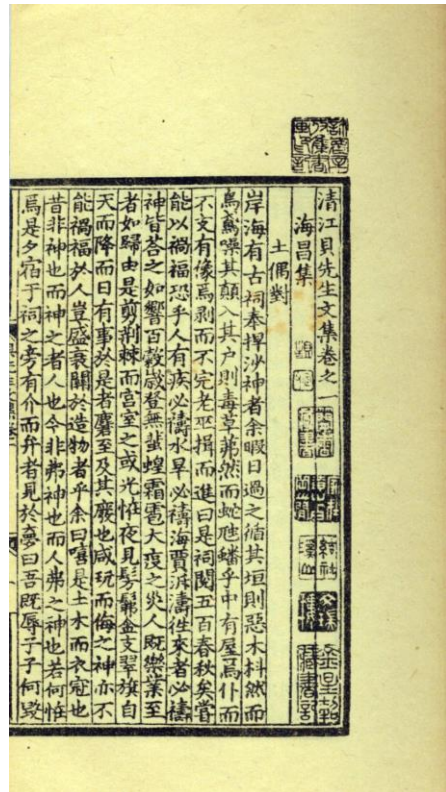 清江貝先生文集卷之一
海昌集
土偶對
岸海有古祠奉捍沙神者余暇日過之循其垣則惡木枓然而
烏鳶噪其顛入其户則毒草茀然而蛇虺蟠乎中有屋焉仆而
不支有像焉剥而不完老巫揖而進曰是祠閱五百春秋矣嘗
能以禍福恐乎人有疾必禱水旱必禱海賈泝濤徃來者必禱
神皆荅之如響百穀咸登無蜚蝗霜雹大疫之災人既樂業至
者如歸由是剪荆棘而宫室之或光恠夜見髣髴金支翠旗自
天而降而日有事於是者麕至及其廢也咸玩而侮之神亦不
能禍福於人豈盛衰關於造物者乎余曰嘻是土木而衣冠也
昔非神也而神之者人也今非弗神也而人弗之神也若何恠
焉是夕宿于祠之旁有介而弁者見於夣曰吾既辱子子何毁